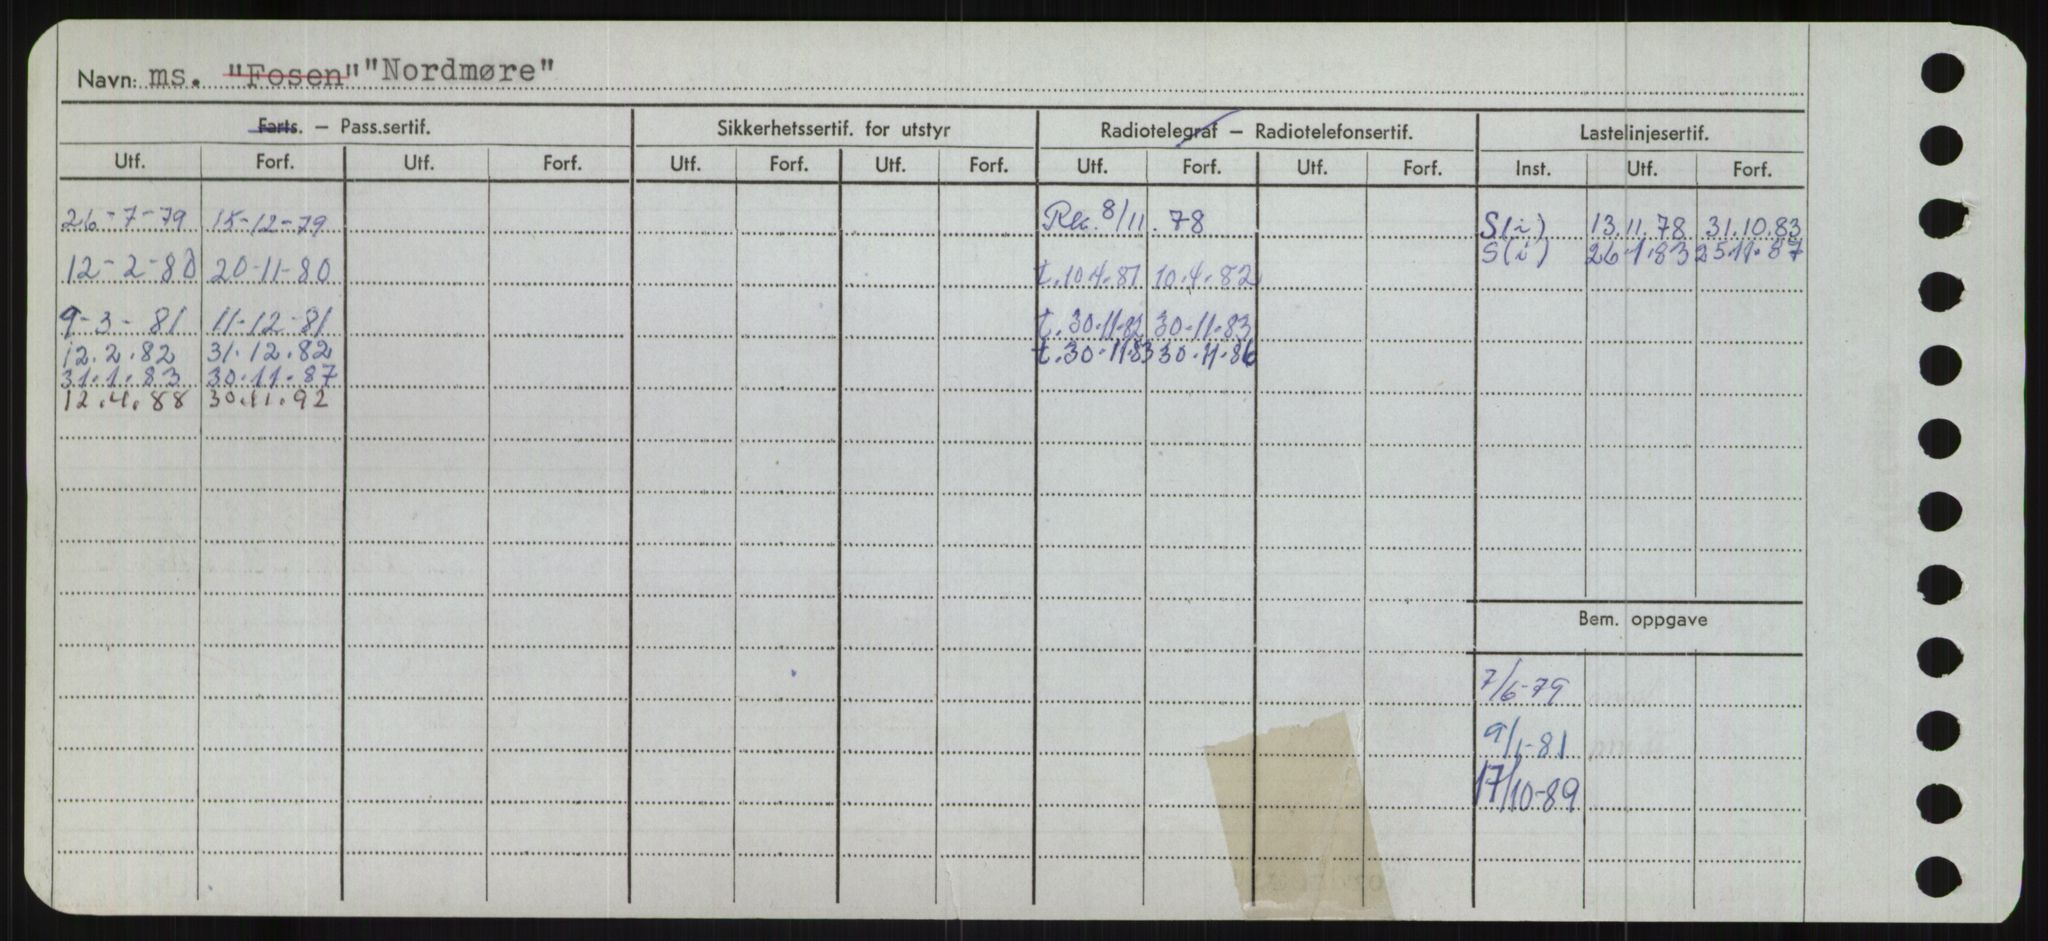 Navn: ms. "Fosen" "Nordmøre"
Farts. – Pass.sertif. Sikkerhetssertif. for utstyr Radiotelegraf – Radiotelefonsertif. Lastelinjesertif.
Utf. Forf. Utf. Forf. Utf. Forf. Utf. Forf. Utf. Forf. Utf. Forf. Inst. Utf. Forf.
26-7-79 15-12-79 8/11.78 S(i) 13.11.78 31.10.83
S(i) 26.1.83 25.11.87
12-2-80 20-11-80 t.10.4.81 10.4.82
9-3-81 11-12-81 t.30.11.82 30.11.83
12.2.82 31.12.82 t.30.11.83 30.11.86
31.1.83 30.11.87
12.4.88 30.11.92
Bem. oppgave
7/6-79
9/1-81
17/10-89